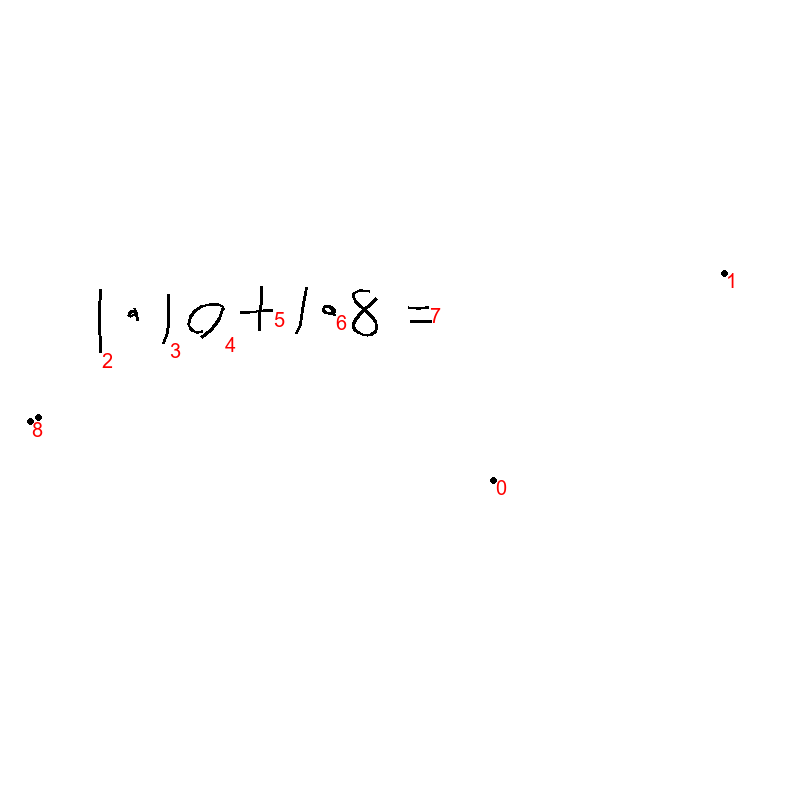 1 · 10 + 1 · 8 =
2 3 4 5 6 7
1
8
0